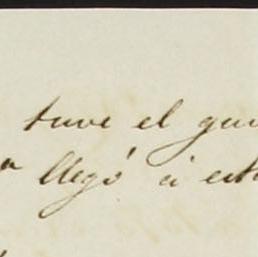 tuve el gus
llegó á est